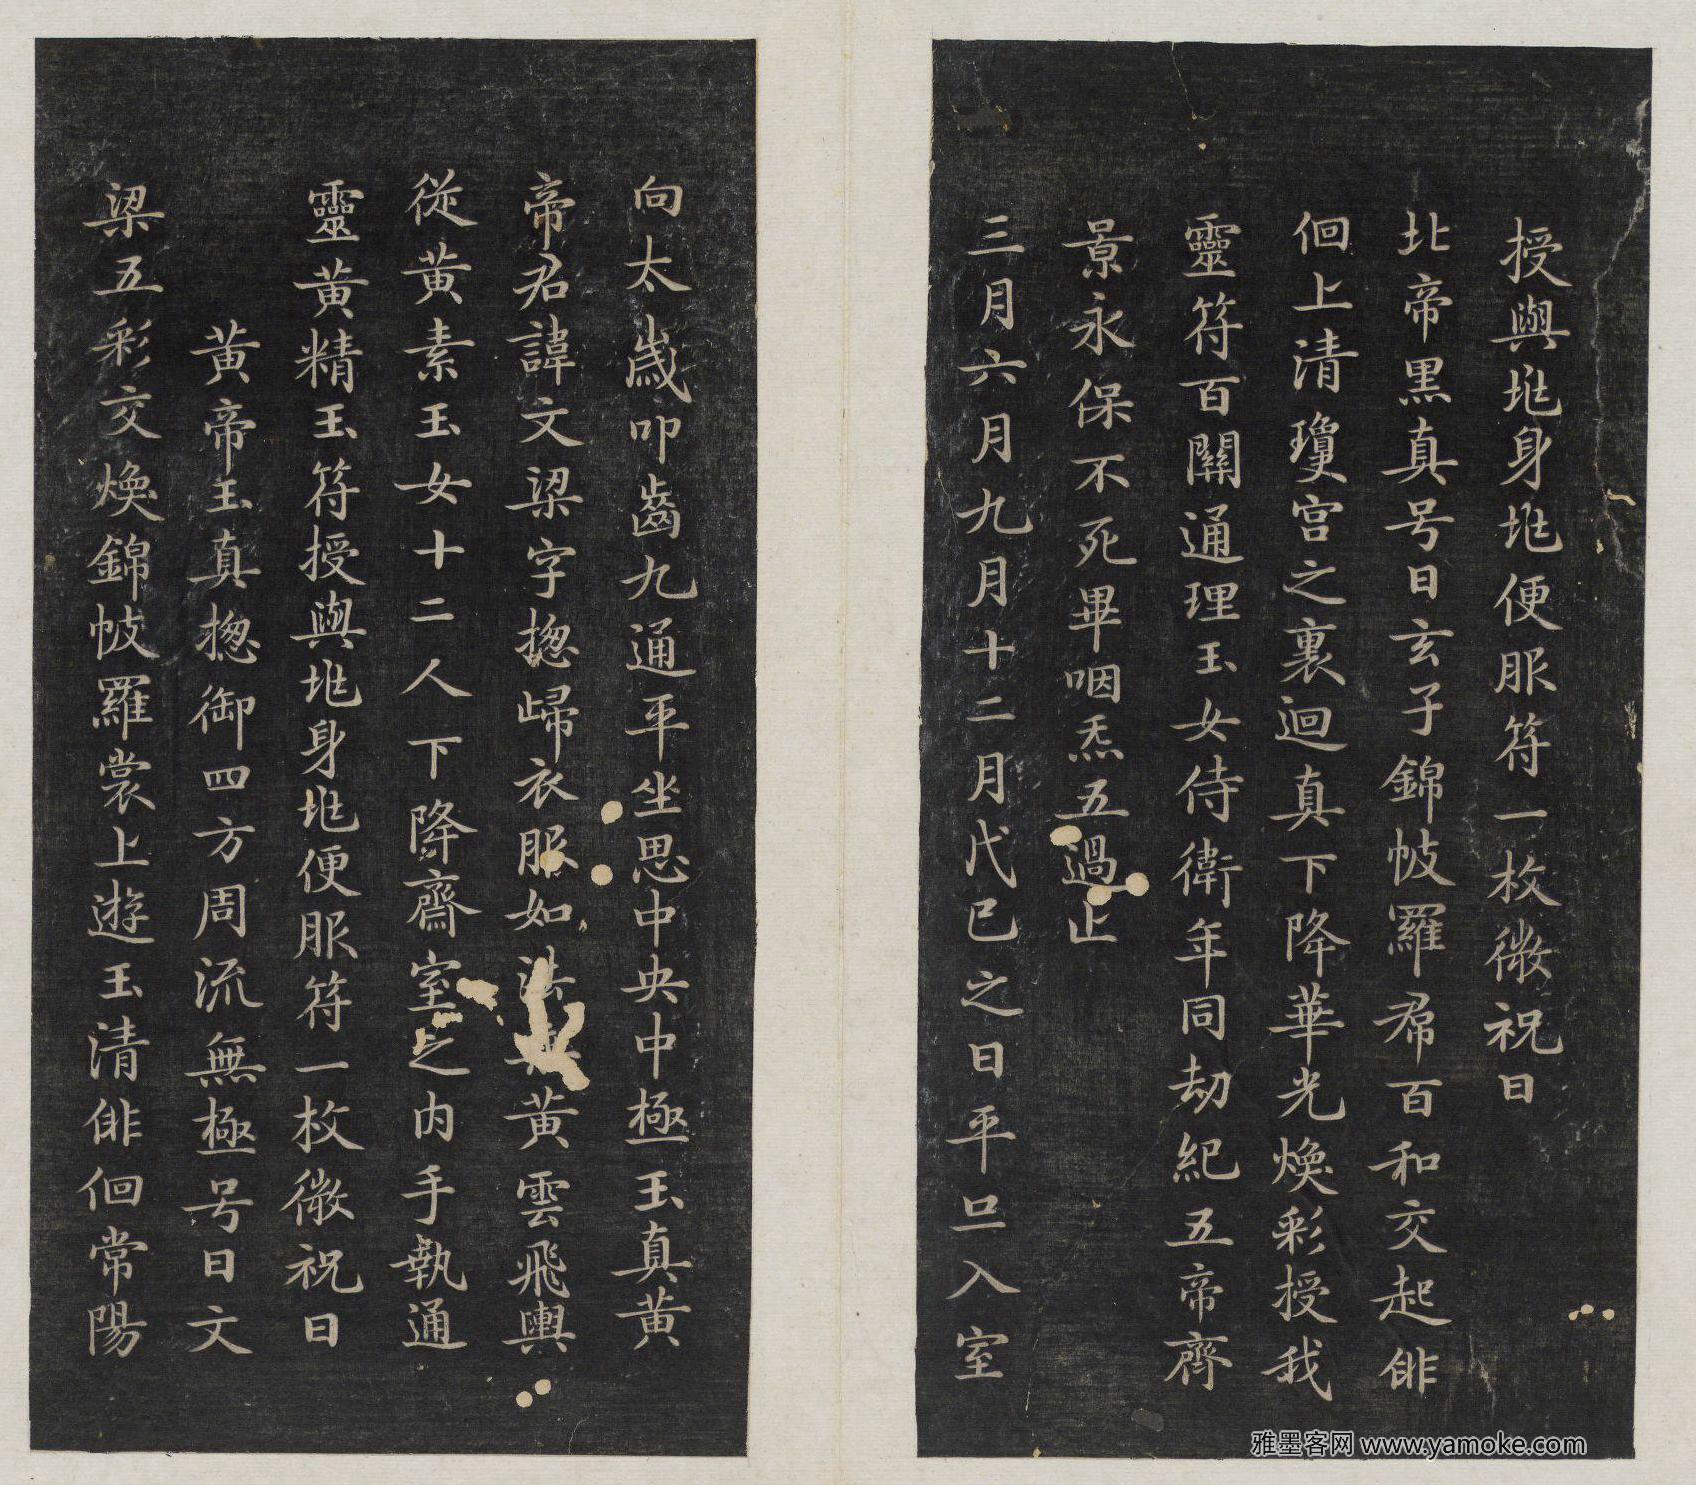 授與兆身兆便服符一枚微祝曰
北帝黑真号曰玄子錦帔羅帬百和交起俳
佪上清瓊宫之裏迴真下降華光煥彩授我
靈符百關通理玉女侍衛年同劫紀五帝齊
景永保不死畢咽炁五過止
三月六月九月十二月戊巳之日平旦入室
向太歲叩齒九通平坐思中央中極玉真黃
帝君諱文梁字揔歸衣服如法乘黃雲飛輿
從黃素玉女十二人下降齋室之內手執通
靈黃精玉符授與兆身兆便服符一枚微祝曰
黃帝玉真揔御四方周流無極号曰文
梁五彩交煥錦帔羅裳上遊玉清俳佪常陽
雅墨客网 www.yamoke.com